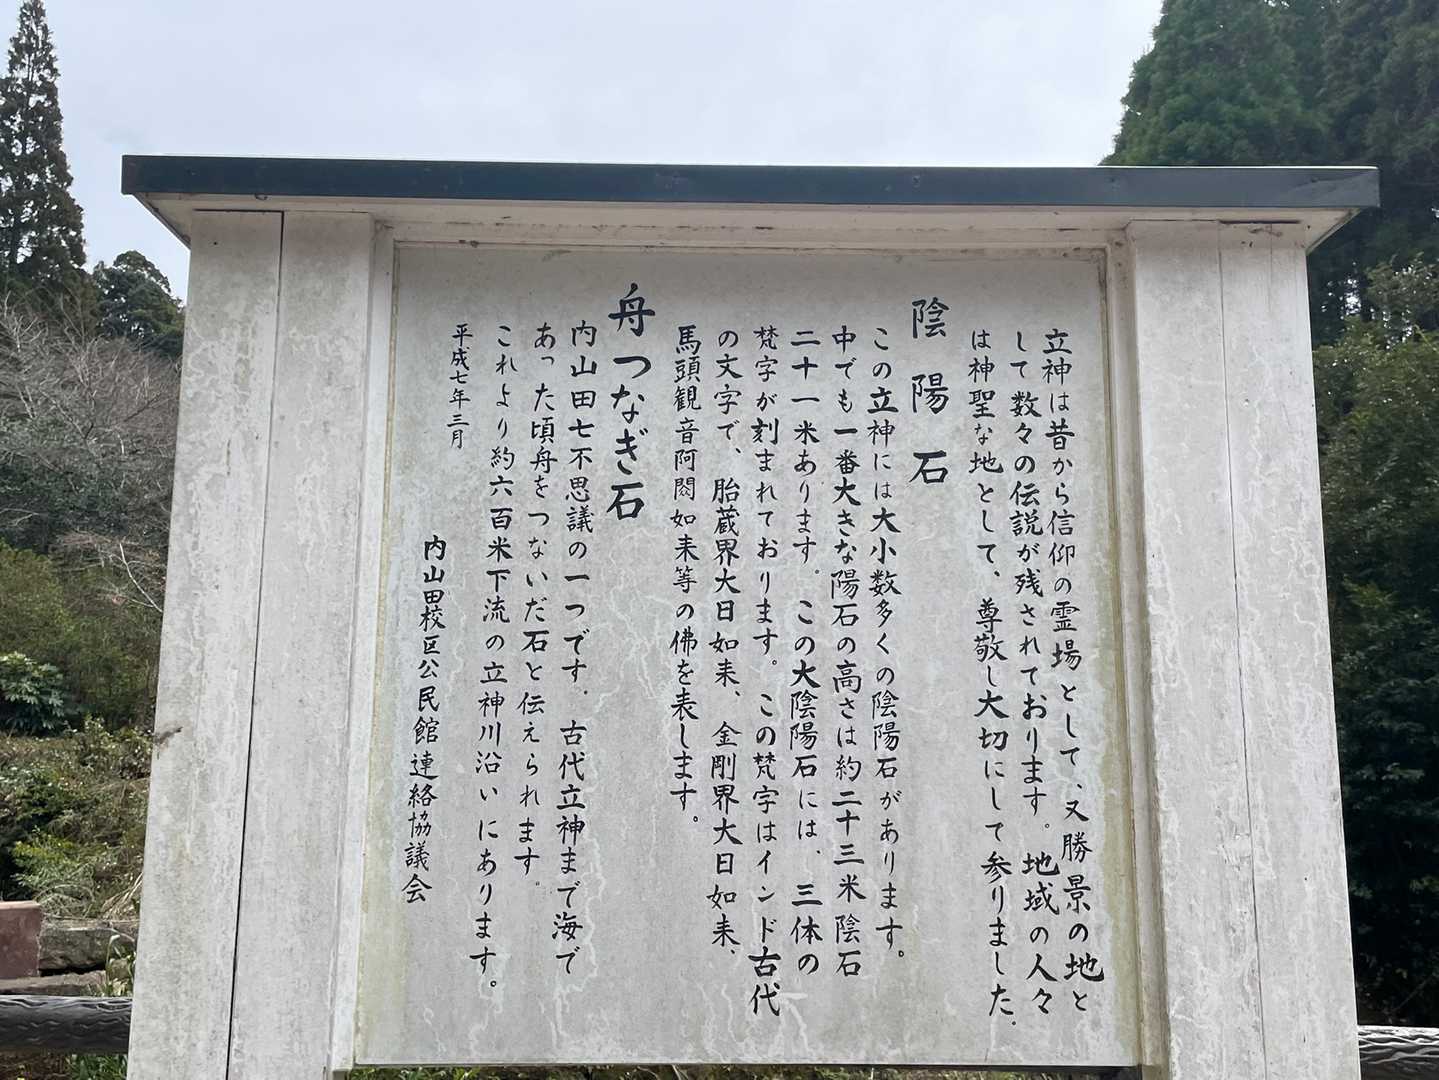 立神は昔から信仰の霊場として、又勝景の地と
して数々の伝説が残されております。地域の人々
は神聖な地として、尊敬し大切にして参りました.
陰陽石
この立神には大小数多くの陰陽石があります。
中でも一番大きな陽石の高さは約二十三米陰石
二十一米あります。この大陰陽石には、三体の
梵字が刻まれております。この梵字はインド古代
の文字で、胎蔵界大日如来、金剛界大日如来、
馬頭観音阿閦如来等の佛を表します。
舟つなぎ石
内山田七不思議の一つです.古代立神まで海で
あった頃舟をつないだ石と伝えられます。
これより約六百米下流の立神川沿いにあります。
平成七年三月
内山田校区公民館連絡協議会